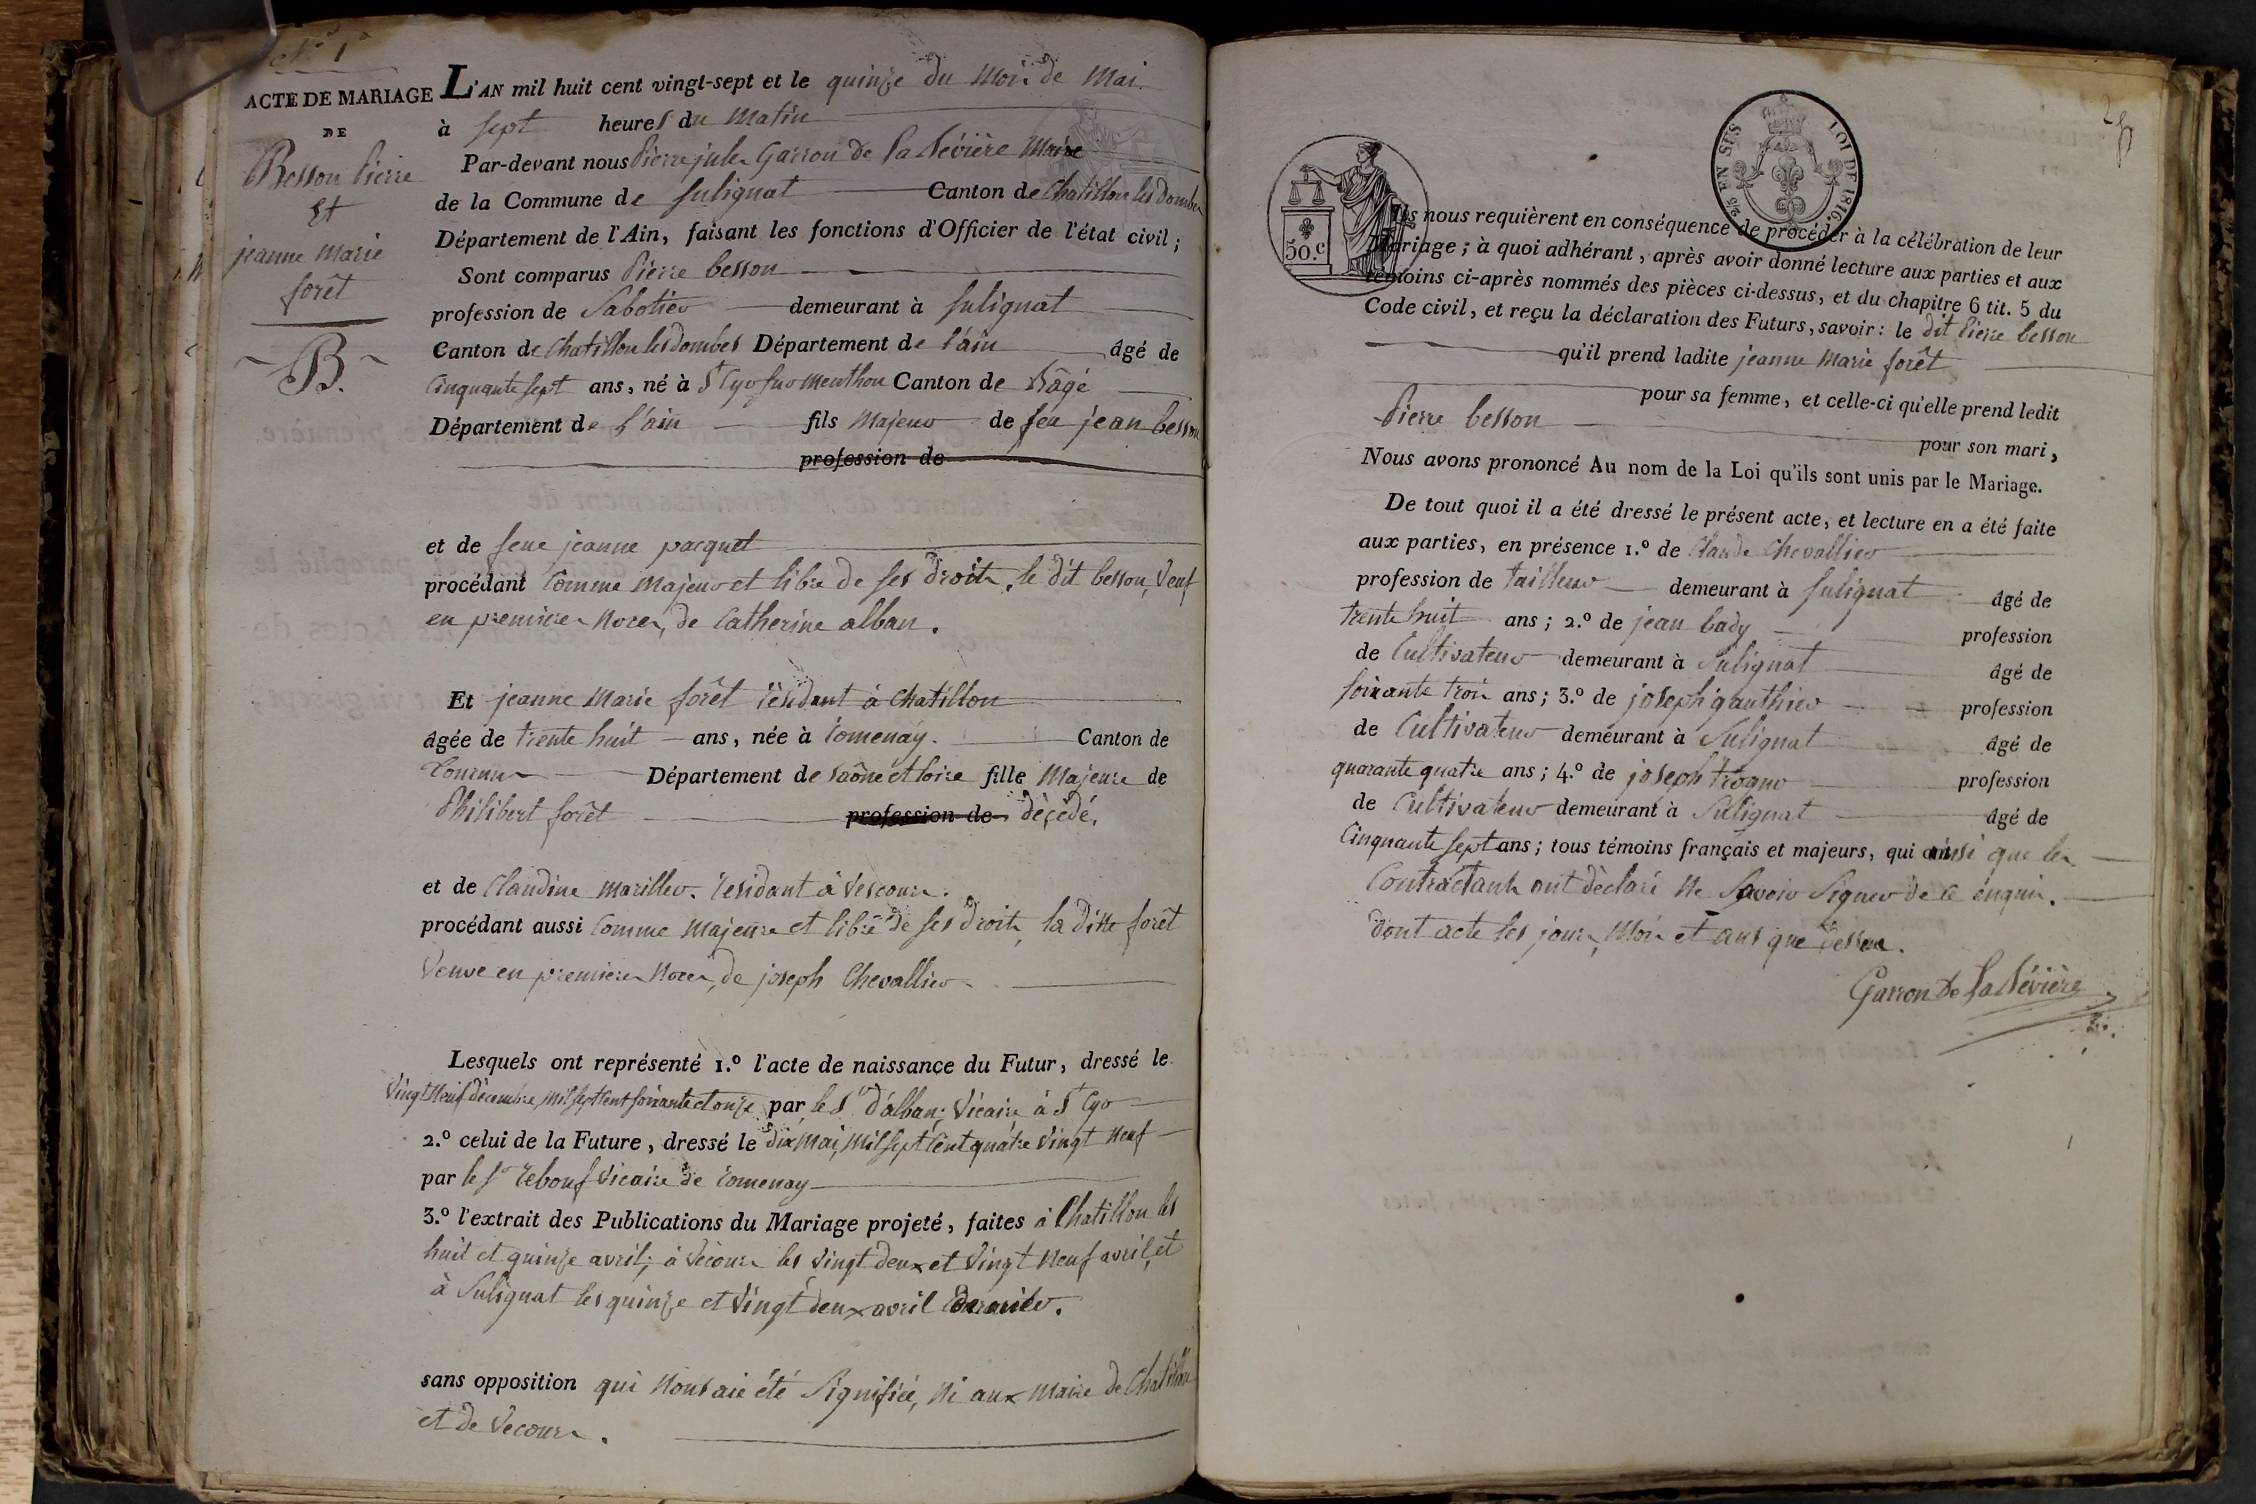 N.° 1.°
ACTE DE MARIAGE
DE
Besson Pierre
Et
jeanne Marie
forêt
B.
L'AN mil huit cent vingt-sept et le quinze du Mois de Mai.
à sept heures du Matin
Par-devant nous Pierre jules Garron de la Bévière Maire
de la Commune de Sulignat Canton de Chatillon les dombes
Département de l'Ain, faisant les fonctions d'Officier de l'état civil;
Sont comparus Pierre besson
profession de Sabotier demeurant à Sulignat
Canton de Chatillon les dombes Département de l'ain âgé de
Cinquante sept ans, né à St Cyr sur Menthon Canton de Bâgé
Département de l'ain fils Majeur de feu jean besson
profession de
et de feue jeanne pacquet
procédant Comme Majeur et libre de ses droits, le dit besson, Veuf
en premieres Noces, de Catherine alban.
Et jeanne Marie forêt résidant à Chatillon
âgée de trente huit ans, née à romenay. Canton de
Tournus Département de saône et loire fille Majeure de
Philibert forêt profession de décédé.
et de Claudine Mariller. résidant à Vescours.
procédant aussi Comme Majeure et libre de ses droits, la ditte forêt
Veuve en premieres Noces, de joseph Chevallier
Lesquels ont représenté 1.° l'acte de naissance du Futur, dressé le
Vingt Neuf décembre, mil sept Cent soixante et onze par le Sr d'alban, Vicaire à St Cyr
2.° celui de la Future, dressé le dix Mai, Mil sept Cent quatre Vingt Neuf
par le Sr rebouf Vicaire de romenay
3.° l'extrait des Publications du Mariage projeté, faites à Chatillon les
huit et quinze avril, à Vecours les Vingt deux et Vingt Neuf avril, et
à Sulignat les quinze et Vingt deux avril dernier.
sans opposition qui Nous aie été Signifiée, Ni aux Maire de Chatillon
et de Vecours.
2/5 EN SUS
LOI DE 1816.
50.c
Ils nous requièrent en conséquence de procéder à la célébration de leur
Mariage; à quoi adhérant, après avoir donné lecture aux parties et aux
témoins ci-après nommés des pièces ci-dessus, et du chapitre 6 tit. 5 du
Code civil, et reçu la déclaration des Futurs, savoir: le dit Pierre besson
qu'il prend ladite jeanne Marie forêt
pour sa femme, et celle-ci qu'elle prend ledit
Pierre besson
pour son mari,
Nous avons prononcé Au nom de la Loi qu'ils sont unis par le Mariage.
De tout quoi il a été dressé le présent acte, et lecture en a été faite
aux parties, en présence 1.° de Claude Chevallier
profession de tailleur demeurant à Sulignat âgé de
trente huit ans; 2.° de jean bady profession
de Cultivateur demeurant à Sulignat âgé de
soixante trois ans; 3.° de joseph gauthier profession
de Cultivateur demeurant à Sulignat âgé de
quarante quatre ans; 4.° de joseph profession
de Cultivateur demeurant à Sulignat âgé de
Cinquante sept ans; tous témoins français et majeurs, qui ainsi que les
Contractants ont déclaré Ne Savoir Signer de ce enquis.
dont acte les jour, Mois et ans que dessus.
Garron de la Bévière